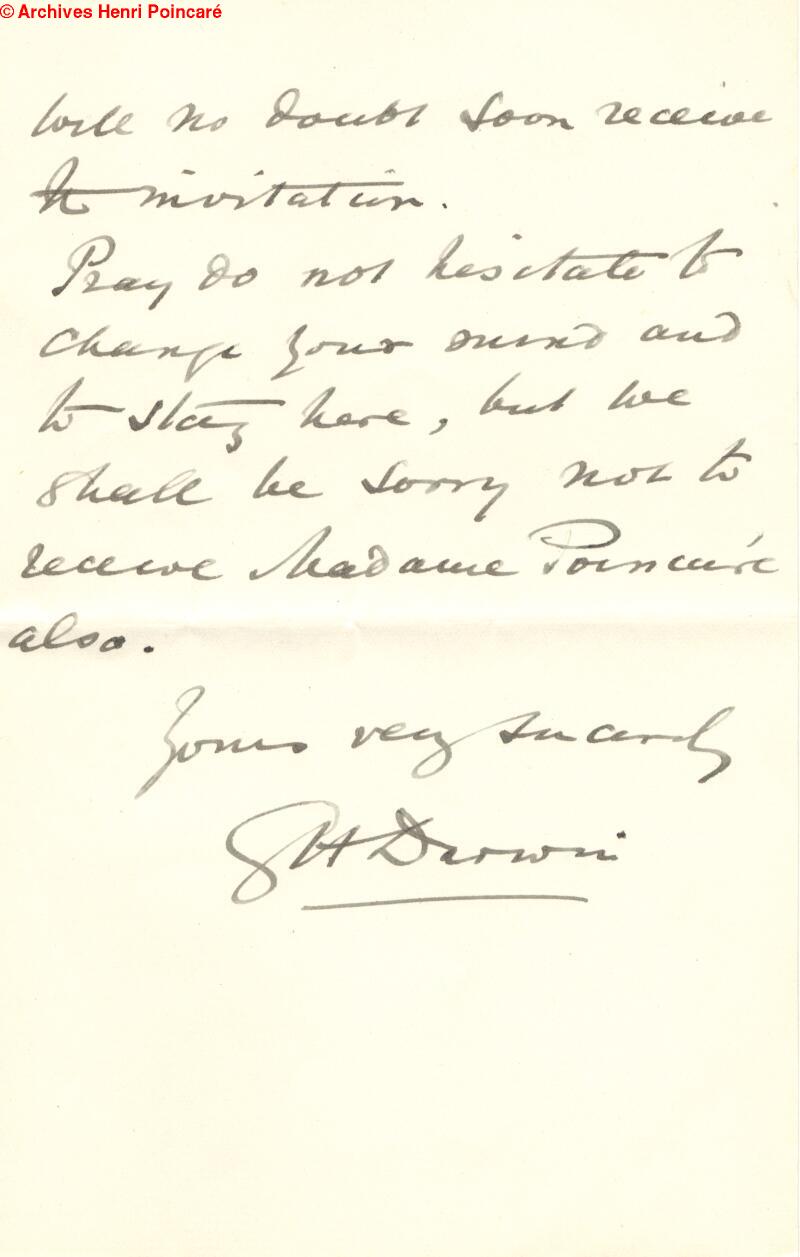 © Archives Henri Poincaré
will no doubt soon receive
invitation.
Pray do not hesitate to
change your mind and
to stay here, but we
shall be sorry not to
receive Madame Poincaré
also.
Yours very sincerely
G H Darwin